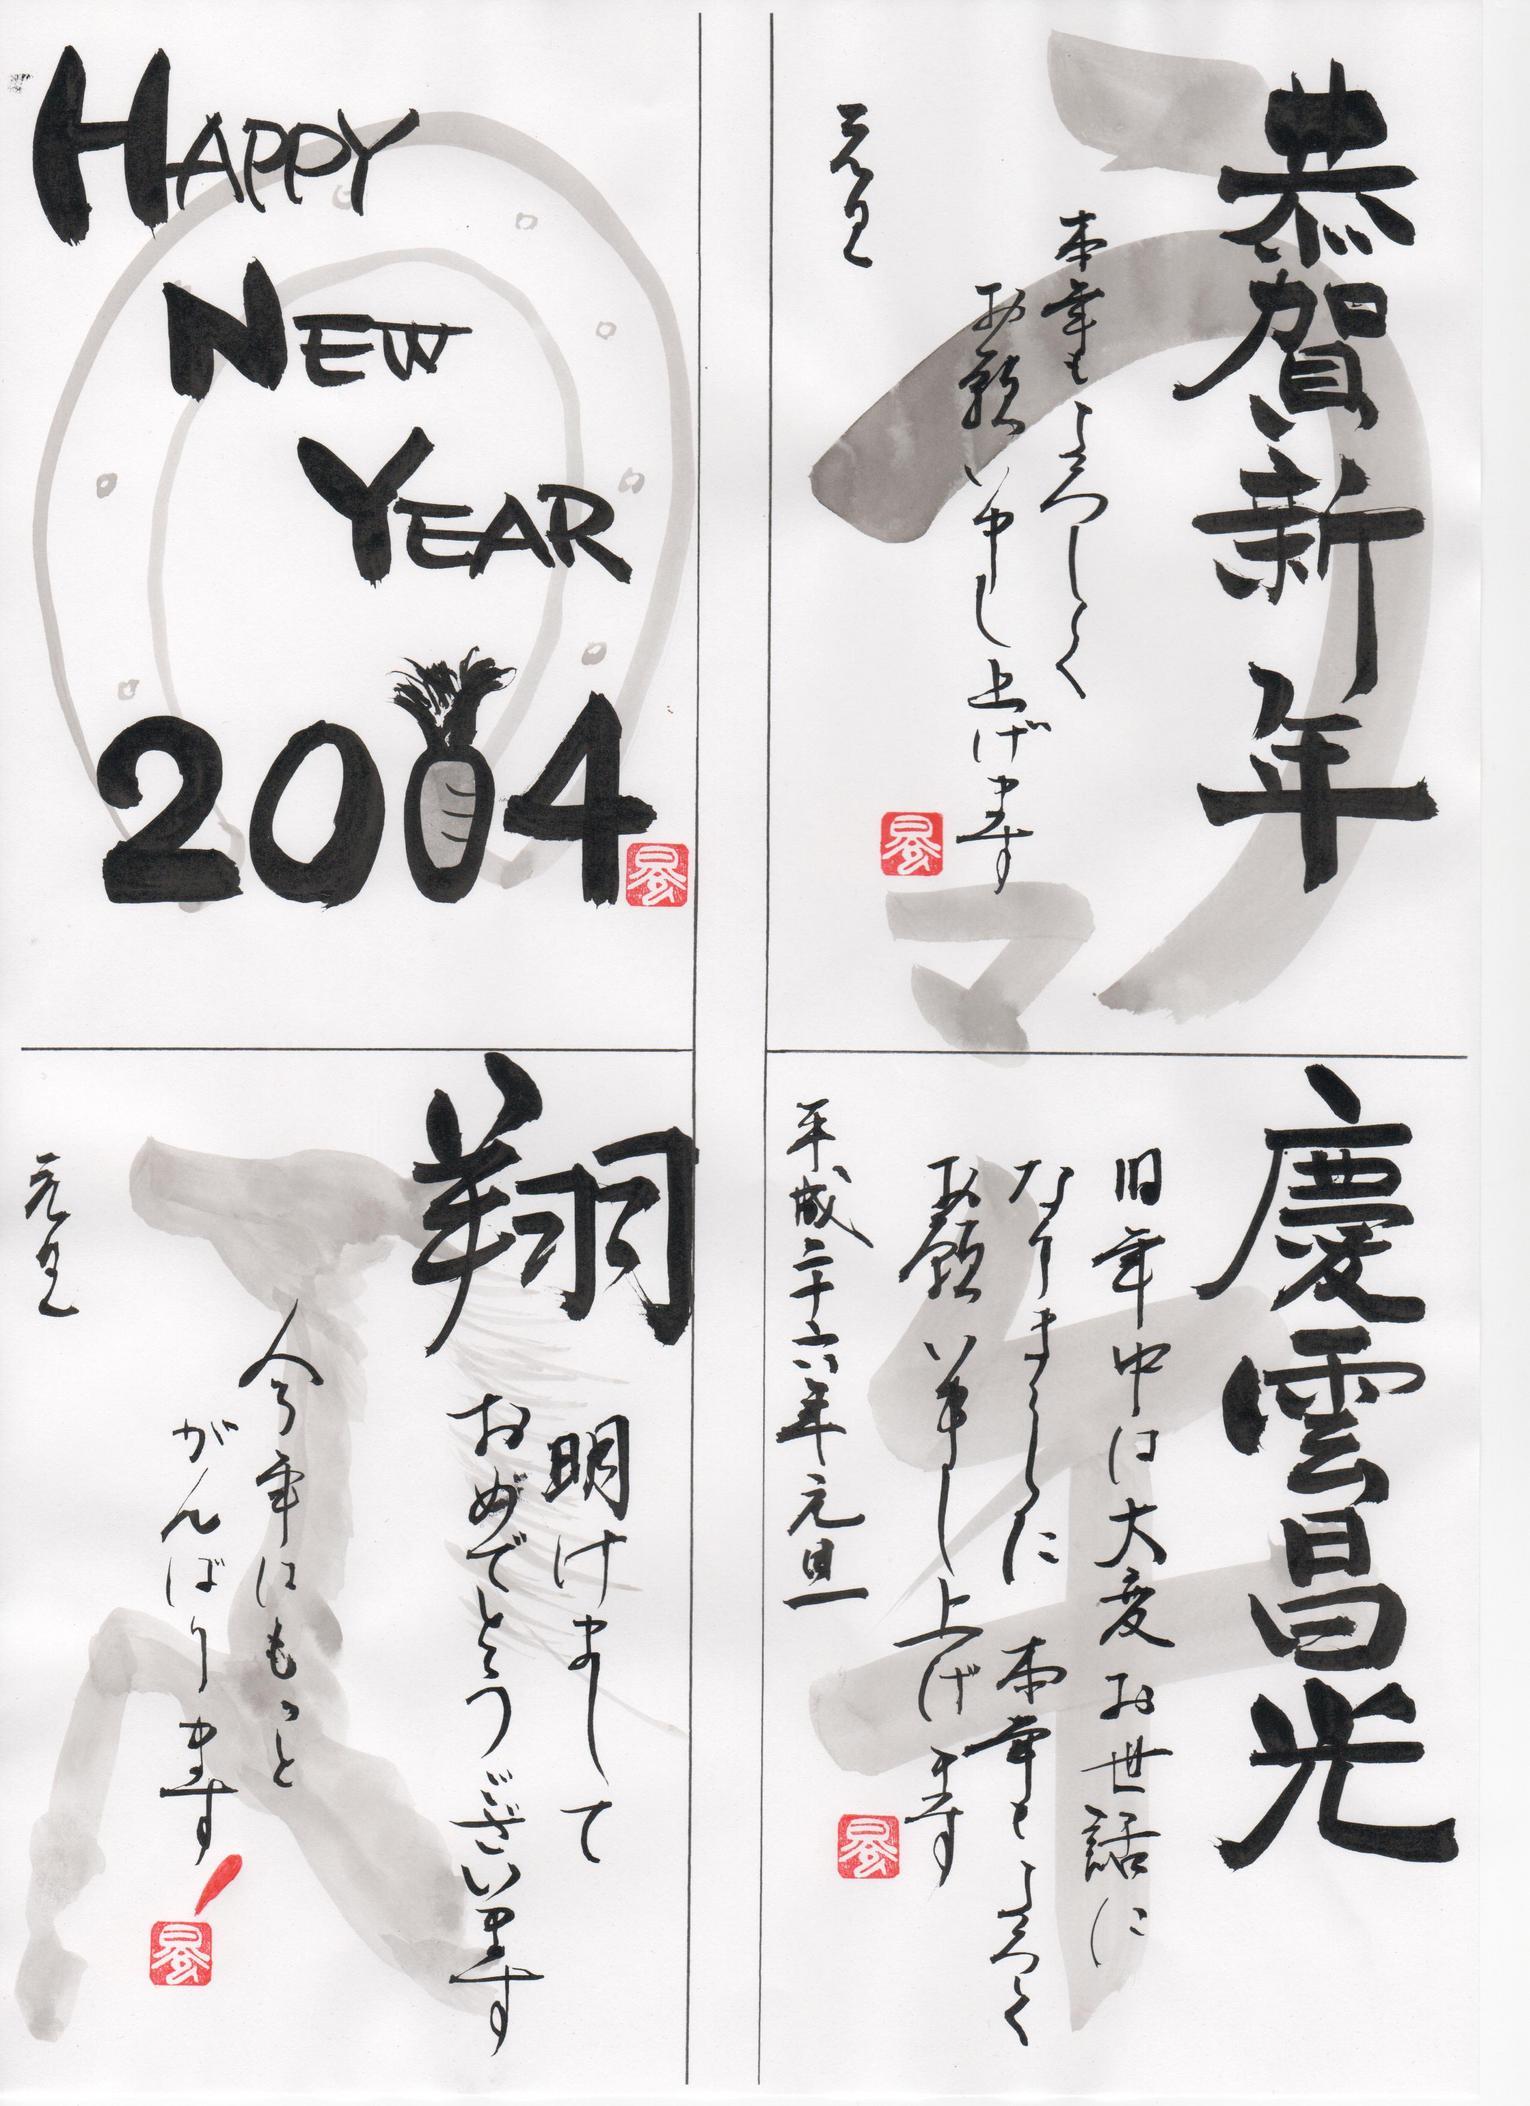 恭賀新年
本年もよろしく
お願い申し上げます
元旦
ウマ
HAPPY
NEW
YEAR
2014
慶雲昌光
旧年中は大変お世話に
なりました 本年もよろしく
お願い申し上げます
平成二十六年元旦
午
翔
明けまして
おめでとうございます
今年はもっと
がんばります!
元旦